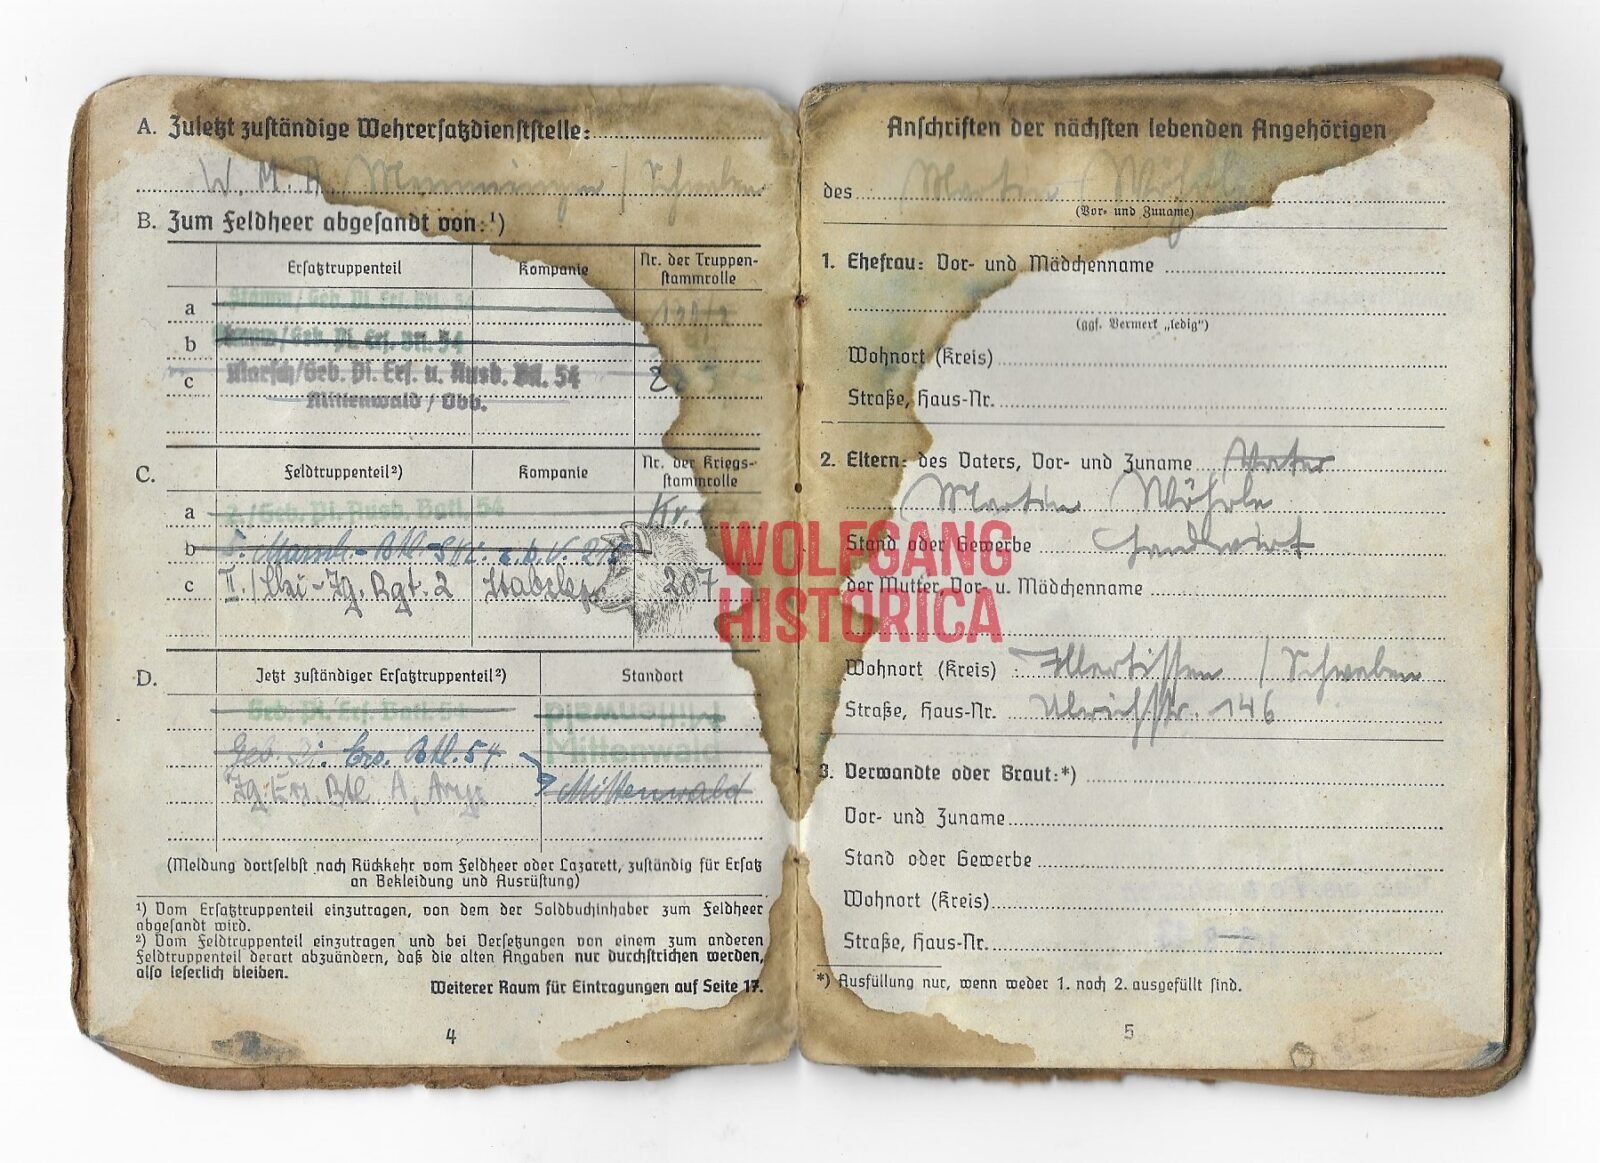 A. Zuletzt zuständige Wehrersatzdienststelle:
W.M.A. Memmingen / Schwaben
B. Zum Feldheer abgesandt von:¹)
Ersatztruppenteil Kompanie Nr. der Truppenstammrolle
a Stamm/Geb. Pi. Ers. Btl. 54
b Stamm/Geb. Pi. Ers. Btl. 54
c Marsch/Geb. Pi. Ers. u. Ausb. Btl. 54
Mittenwald / Obb.
C. Feldtruppenteil²) Kompanie Nr. der Kriegsstammrolle
a 2./Geb. Pi. Ausb. Batl. 54 Kr.
b Marsch-Btl.
c II./Ski-Jg. Rgt. 2 Stabskp. 207
D. Jetzt zuständiger Ersatztruppenteil²) Standort
Geb. Pi. Ers. Batl. 54 Mittenwald
Geb. Pi. Ers. Btl. 54 Mittenwald
Jg. Ers. Btl A, Mittenwald
(Meldung dortselbst nach Rückkehr vom Feldheer oder Lazarett, zuständig für Ersatz
an Bekleidung und Ausrüstung)
¹) Vom Ersatztruppenteil einzutragen, von dem der Soldbuchinhaber zum Feldheer
abgesandt wird.
²) Vom Feldtruppenteil einzutragen und bei Versetzungen von einem zum anderen
Feldtruppenteil derart abzuändern, daß die alten Angaben nur durchstrichen werden,
also leserlich bleiben.
Weiterer Raum für Eintragungen auf Seite 17.
4
Anschriften der nächsten lebenden Angehörigen
des Martin Wöhrle
(Vor- und Zuname)
1. Ehefrau: Vor- und Mädchenname
(ggf. Vermerk „ledig“)
Wohnort (Kreis)
Straße, Haus-Nr.
2. Eltern: des Vaters, Vor- und Zuname Vater
Martin Wöhrle
Stand oder Gewerbe Landwirt
der Mutter, Vor- u. Mädchenname
Wohnort (Kreis) Illertissen / Schwaben
Straße, Haus-Nr. Ulrichstr. 146
3. Verwandte oder Braut:*)
Vor- und Zuname
Stand oder Gewerbe
Wohnort (Kreis)
Straße, Haus-Nr.
*) Ausfüllung nur, wenn weder 1. noch 2. ausgefüllt sind.
5
WOLFGANG
HISTORICA